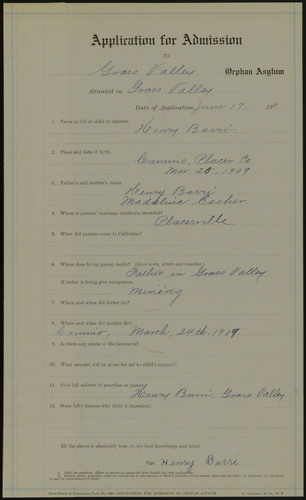 Application for Admission
TO
Grass Valley Orphan Asylum
Situated in Grass Valley
Date of Application, June 17 191
1. Name in full of child or children.
Henry Barri.
2. Place and date of birth.
Camino, Placer Co.
Mar. 25, 1909
3. Father's and mother's name.
Henry Barri
Madeline
4. Where is parents' marriage certificate recorded?
Placerville
5. When did parents come to California?
6. Where does living parent reside? (Give town, street and number)
Father in Grass Valley
If father is living give occupation.
Mining
7. Where and when did father die?
8. Where and when did mother die?
Camino, March, 24th. 1909.
9. Is there any estate or life insurance?
10. What amount will be given for aid to child's support?
11. Give full address of guardian or parent
Henry Barri, Grass Valley
12. State fully reasons why child is dependent
All the above is absolutely true, to my best knowledge and belief.
Sign Henry Barri.